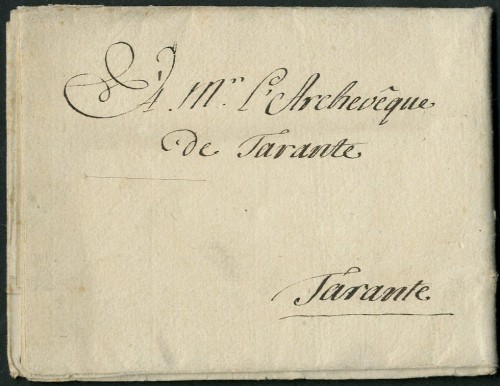 A Mr. l'Archevêque
de Tarante
Tarante